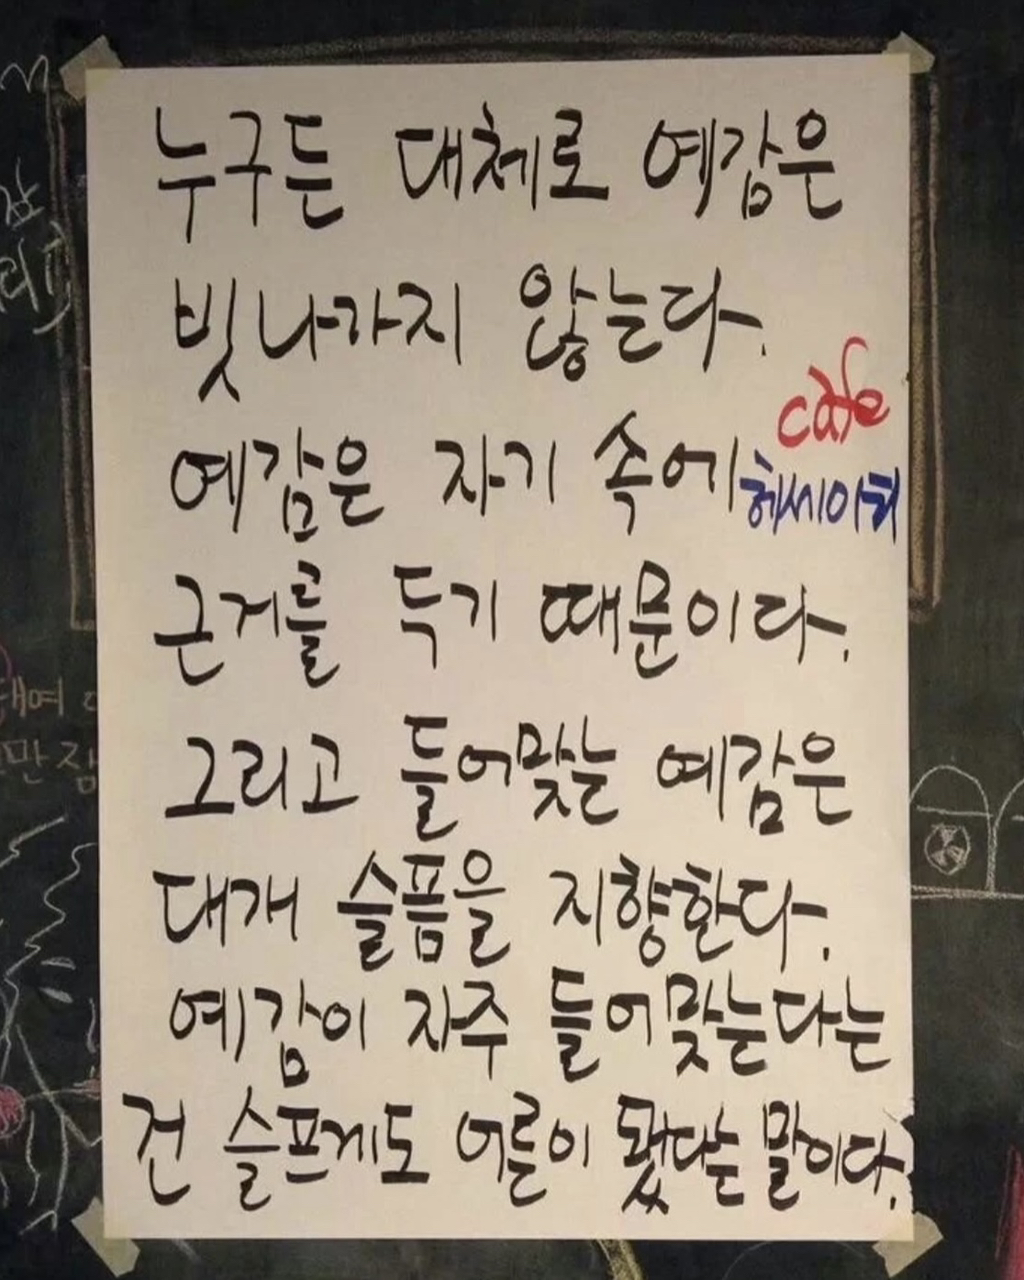 누구든 대체로 예감은
빗나가지 않는다.
cafe
예감은 자기 속에
헤세이허
근거를 두기 때문이다.
그리고 들어맞는 예감은
대개 슬픔을 지향한다.
예감이 자주 들어맞는다는
건 슬프게도 어른이 됐다는 말이다.